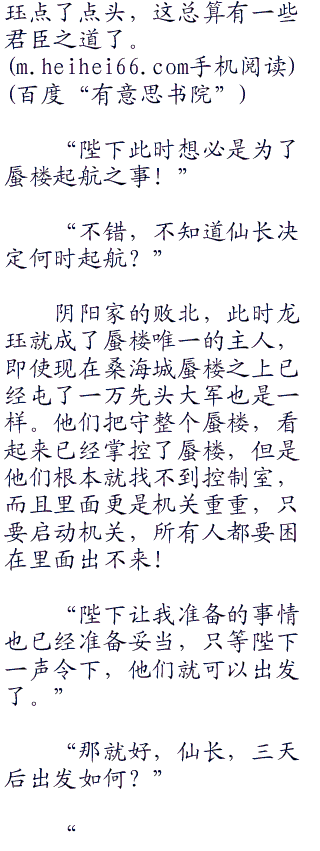 珏点了点头，这总算有一些
君臣之道了。
(m.heihei66.com手机阅读)
(百度“有意思书院”)
“陛下此时想必是为了
蜃楼起航之事！”
“不错，不知道仙长决
定何时起航？”
阴阳家的败北，此时龙
珏就成了蜃楼唯一的主人，
即使现在桑海城蜃楼之上已
经屯了一万先头大军也是一
样。他们把守整个蜃楼，看
起来已经掌控了蜃楼，但是
他们根本就找不到控制室，
而且里面更是机关重重，只
要启动机关，所有人都要困
在里面出不来！
“陛下让我准备的事情
也已经准备妥当，只等陛下
一声令下，他们就可以出发
了。”
“那就好，仙长，三天
后出发如何？”
“